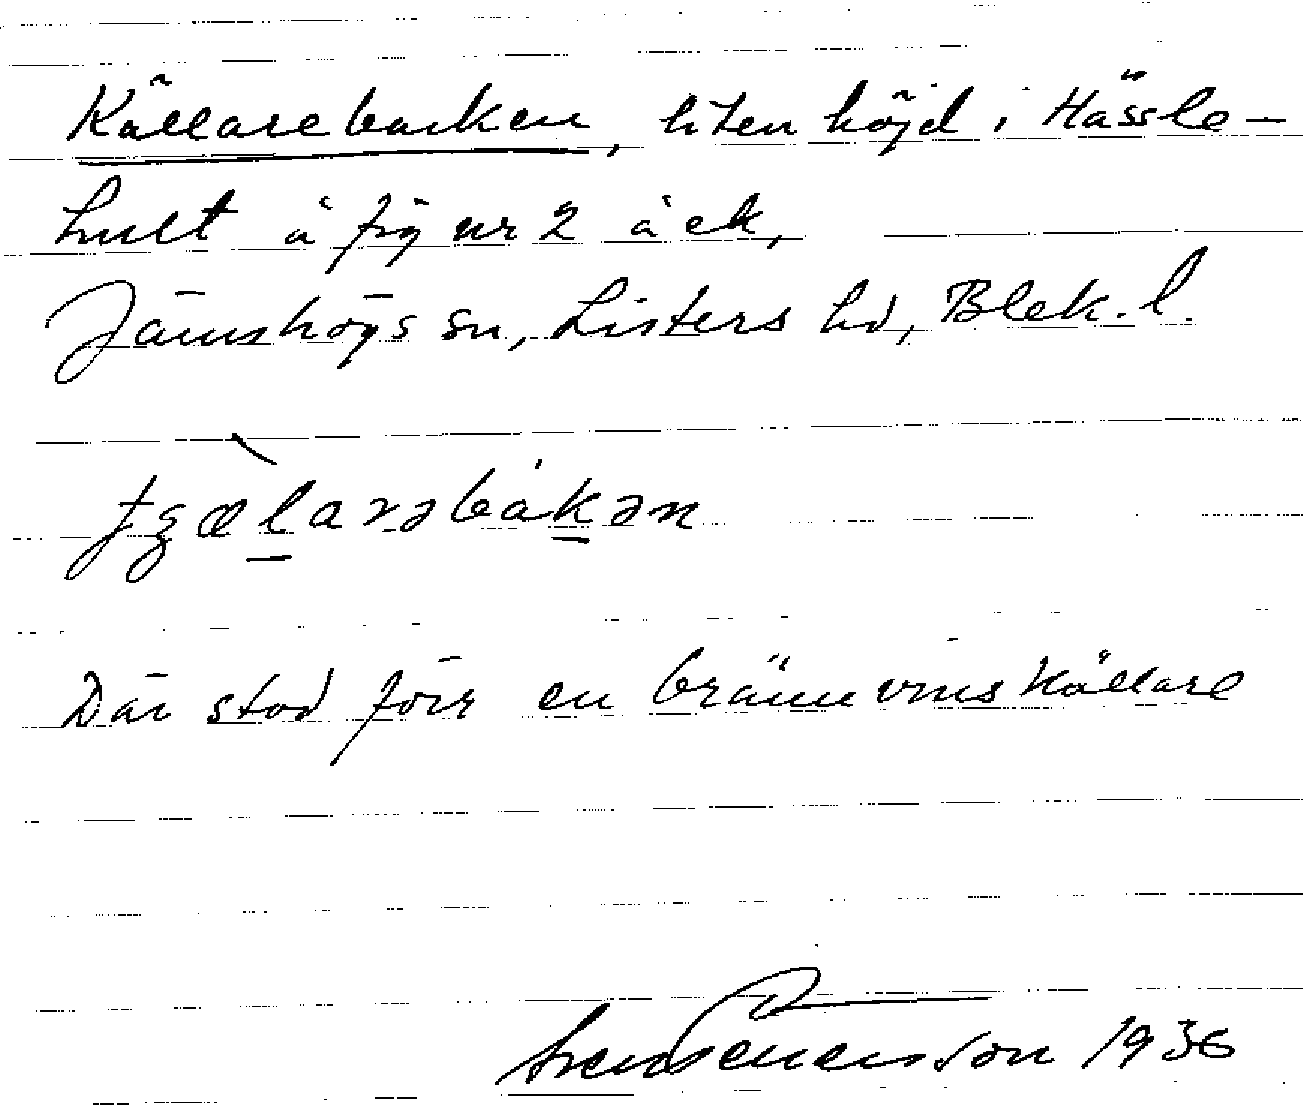 Källarebacken, liten höjd i Hässle-
hult å fig nr 2 å ek,
Jämshögs sn, Listers hd, Blek. l.
tʒælarəbákən
Där stod förr en brännvinskällare
Sven Svenson 1936